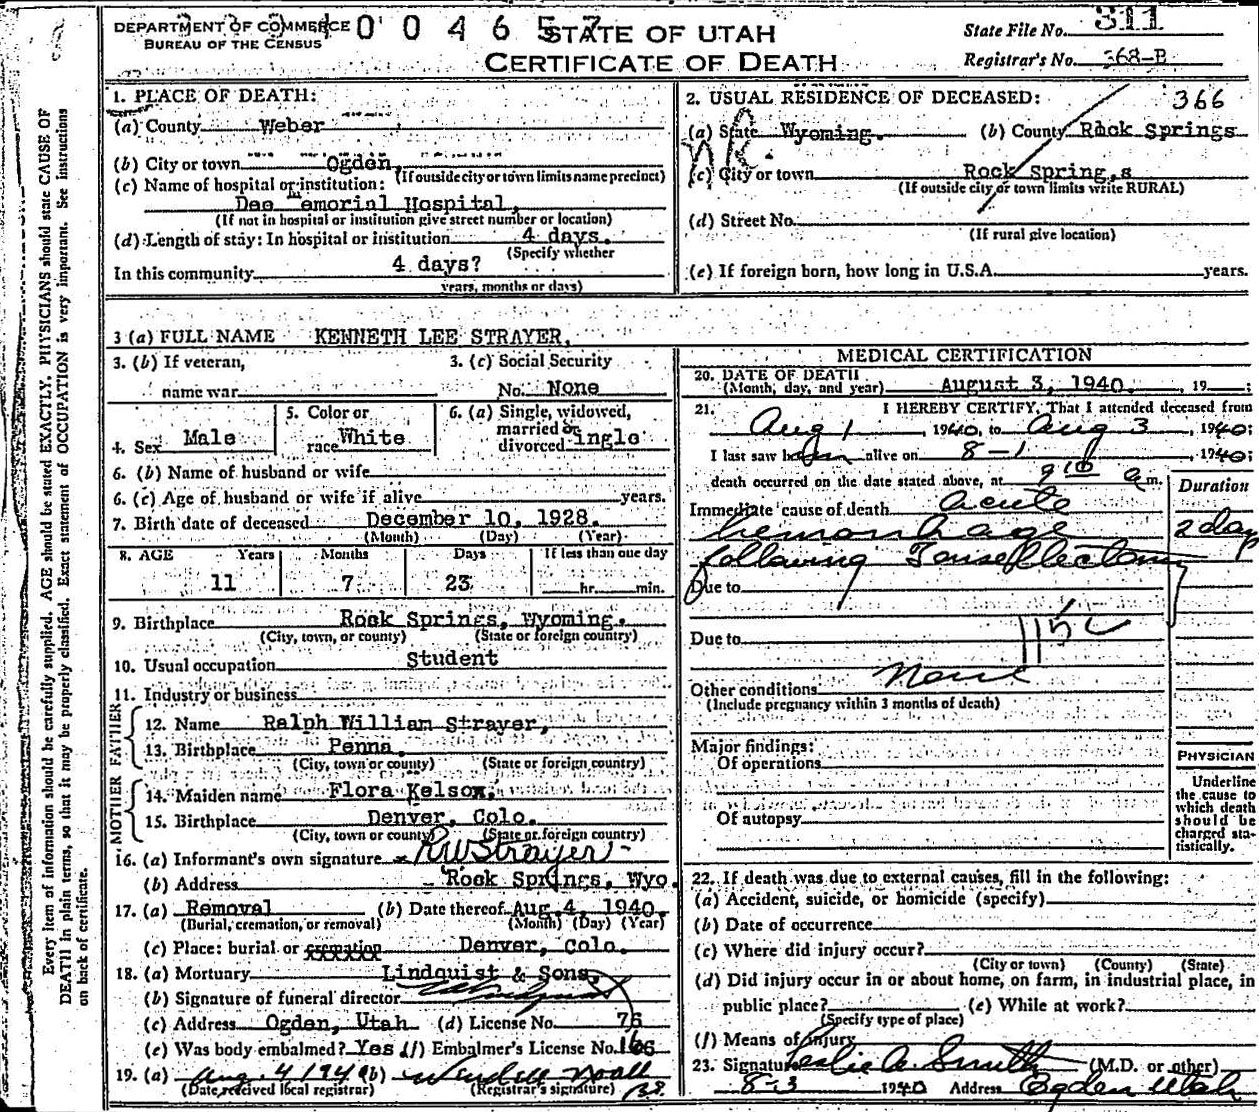 DEPARTMENT OF COMMERCE
BUREAU OF THE CENSUS
0 0 4 6 5 7
STATE OF UTAH
CERTIFICATE OF DEATH
State File No. 311
Registrar's No. 368-B
Every item of information should be carefully supplied. AGE should be stated EXACTLY. PHYSICIANS should state CAUSE OF
DEATH in plain terms, so that it may be properly classified. Exact statement of OCCUPATION is very important. See instructions
on back of certificate.
1. PLACE OF DEATH:
(a) County Weber
(b) City or town Ogden,
(If outside city or town limits name precinct)
(c) Name of hospital or institution:
Dee Memorial Hospital,
(If not in hospital or institution give street number or location)
(d) Length of stay: In hospital or institution 4 days.
(Specify whether
In this community 4 days?
years, months or days)
2. USUAL RESIDENCE OF DECEASED: 366
(a) State Wyoming. (b) County Rock Springs
(c) City or town Rock Spring,s
(If outside city or town limits write RURAL)
(d) Street No.
(If rural give location)
(e) If foreign born, how long in U.S.A. years.
3 (a) FULL NAME KENNETH LEE STRAYER,
3. (b) If veteran,
name war
3. (c) Social Security
No. None
4. Sex Male
5. Color or
race White
6. (a) Single, widowed,
married or
divorced ingle
6. (b) Name of husband or wife
6. (c) Age of husband or wife if alive years.
7. Birth date of deceased December 10, 1928.
(Month) (Day) (Year)
8. AGE Years Months Days If less than one day
11 7 23 hr. min.
9. Birthplace Rock Springs, Wyoming.
(City, town, or county) (State or foreign country)
10. Usual occupation Student
11. Industry or business
FATHER
12. Name Ralph William Strayer,
13. Birthplace Penna.
(City, town or county) (State or foreign country)
MOTHER
14. Maiden name Flora Kelson.
15. Birthplace Denver, Colo.
(City, town or county) (State or foreign country)
16. (a) Informant's own signature x RW Strayer
(b) Address Rock Springs, Wyo.
17. (a) Removal (b) Date thereof Aug. 4, 1940.
(Burial, cremation, or removal) (Month) (Day) (Year)
(c) Place: burial or cremation Denver, Colo.
18. (a) Mortuary Lindquist & Sons,
(b) Signature of funeral director
(c) Address Ogden, Utah (d) License No. 76
(e) Was body embalmed? Yes (f) Embalmer's License No.
19. (a) Aug. 4 1940 (b) Wendell Noall
(Date received local registrar) (Registrar's signature)
MEDICAL CERTIFICATION
20. DATE OF DEATH
(Month, day, and year) August 3, 1940. , 19 ;
21. I HEREBY CERTIFY, That I attended deceased from
Aug 1 , 1940, to Aug 3 , 1940;
I last saw him alive on 8-1 , 1940;
death occurred on the date stated above, at 9 10 a m.
Duration
Immediate cause of death acute
hemorrhage 2 days
following Tonsillectomy
Due to
Due to 115
Other conditions None
(Include pregnancy within 3 months of death)
Major findings:
Of operations
Of autopsy
PHYSICIAN
Underline
the cause to
which death
should be
charged sta-
tistically.
22. If death was due to external causes, fill in the following:
(a) Accident, suicide, or homicide (specify)
(b) Date of occurrence
(c) Where did injury occur?
(City or town) (County) (State)
(d) Did injury occur in or about home, on farm, in industrial place, in
public place? (e) While at work?
(Specify type of place)
(f) Means of injury
23. Signature Leslie A. Smith (M.D. or other)
8-3 1940 Address Ogden Utah